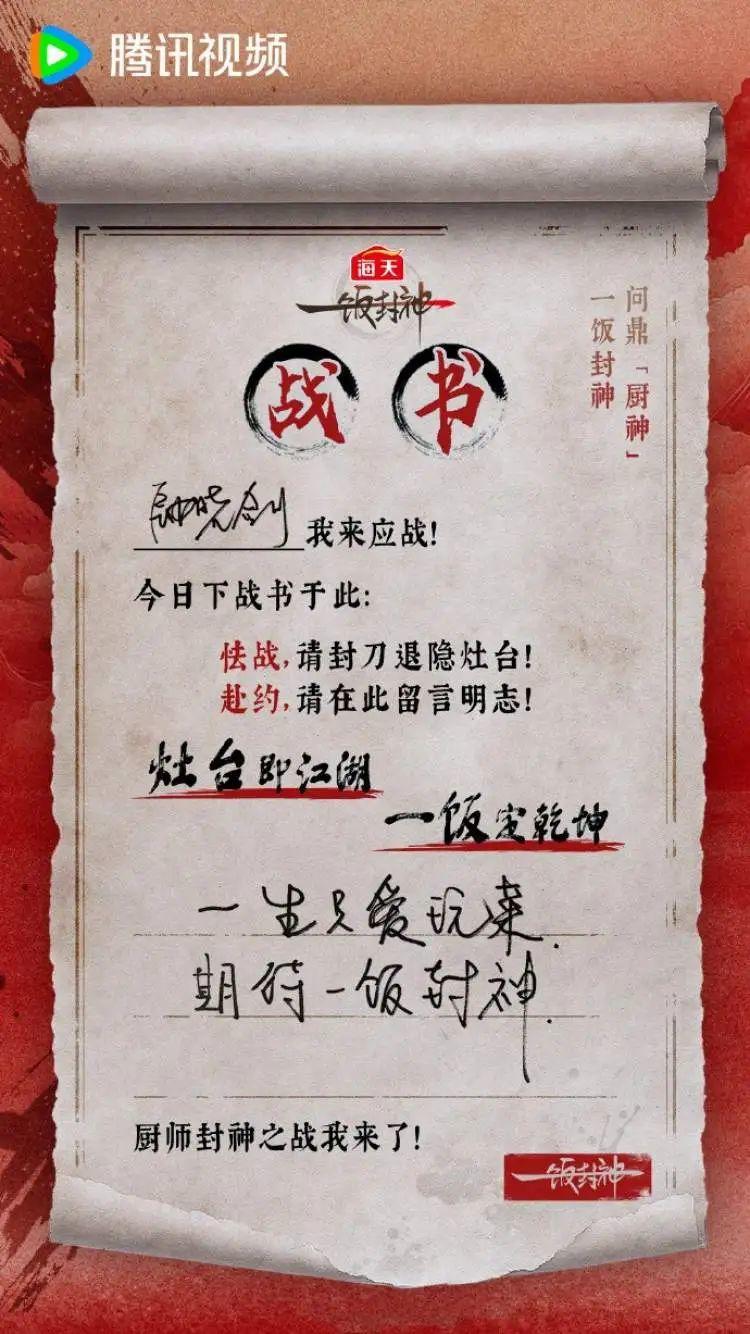 腾讯视频
海天
一饭封神
问鼎「厨神」
一饭封神
战书
我来应战!
今日下战书于此:
怯战,请封刀退隐灶台!
赴约,请在此留言明志!
灶台即江湖
一饭定乾坤
一生只爱玩菜.
期待一饭封神.
厨师封神之战我来了!
一饭封神